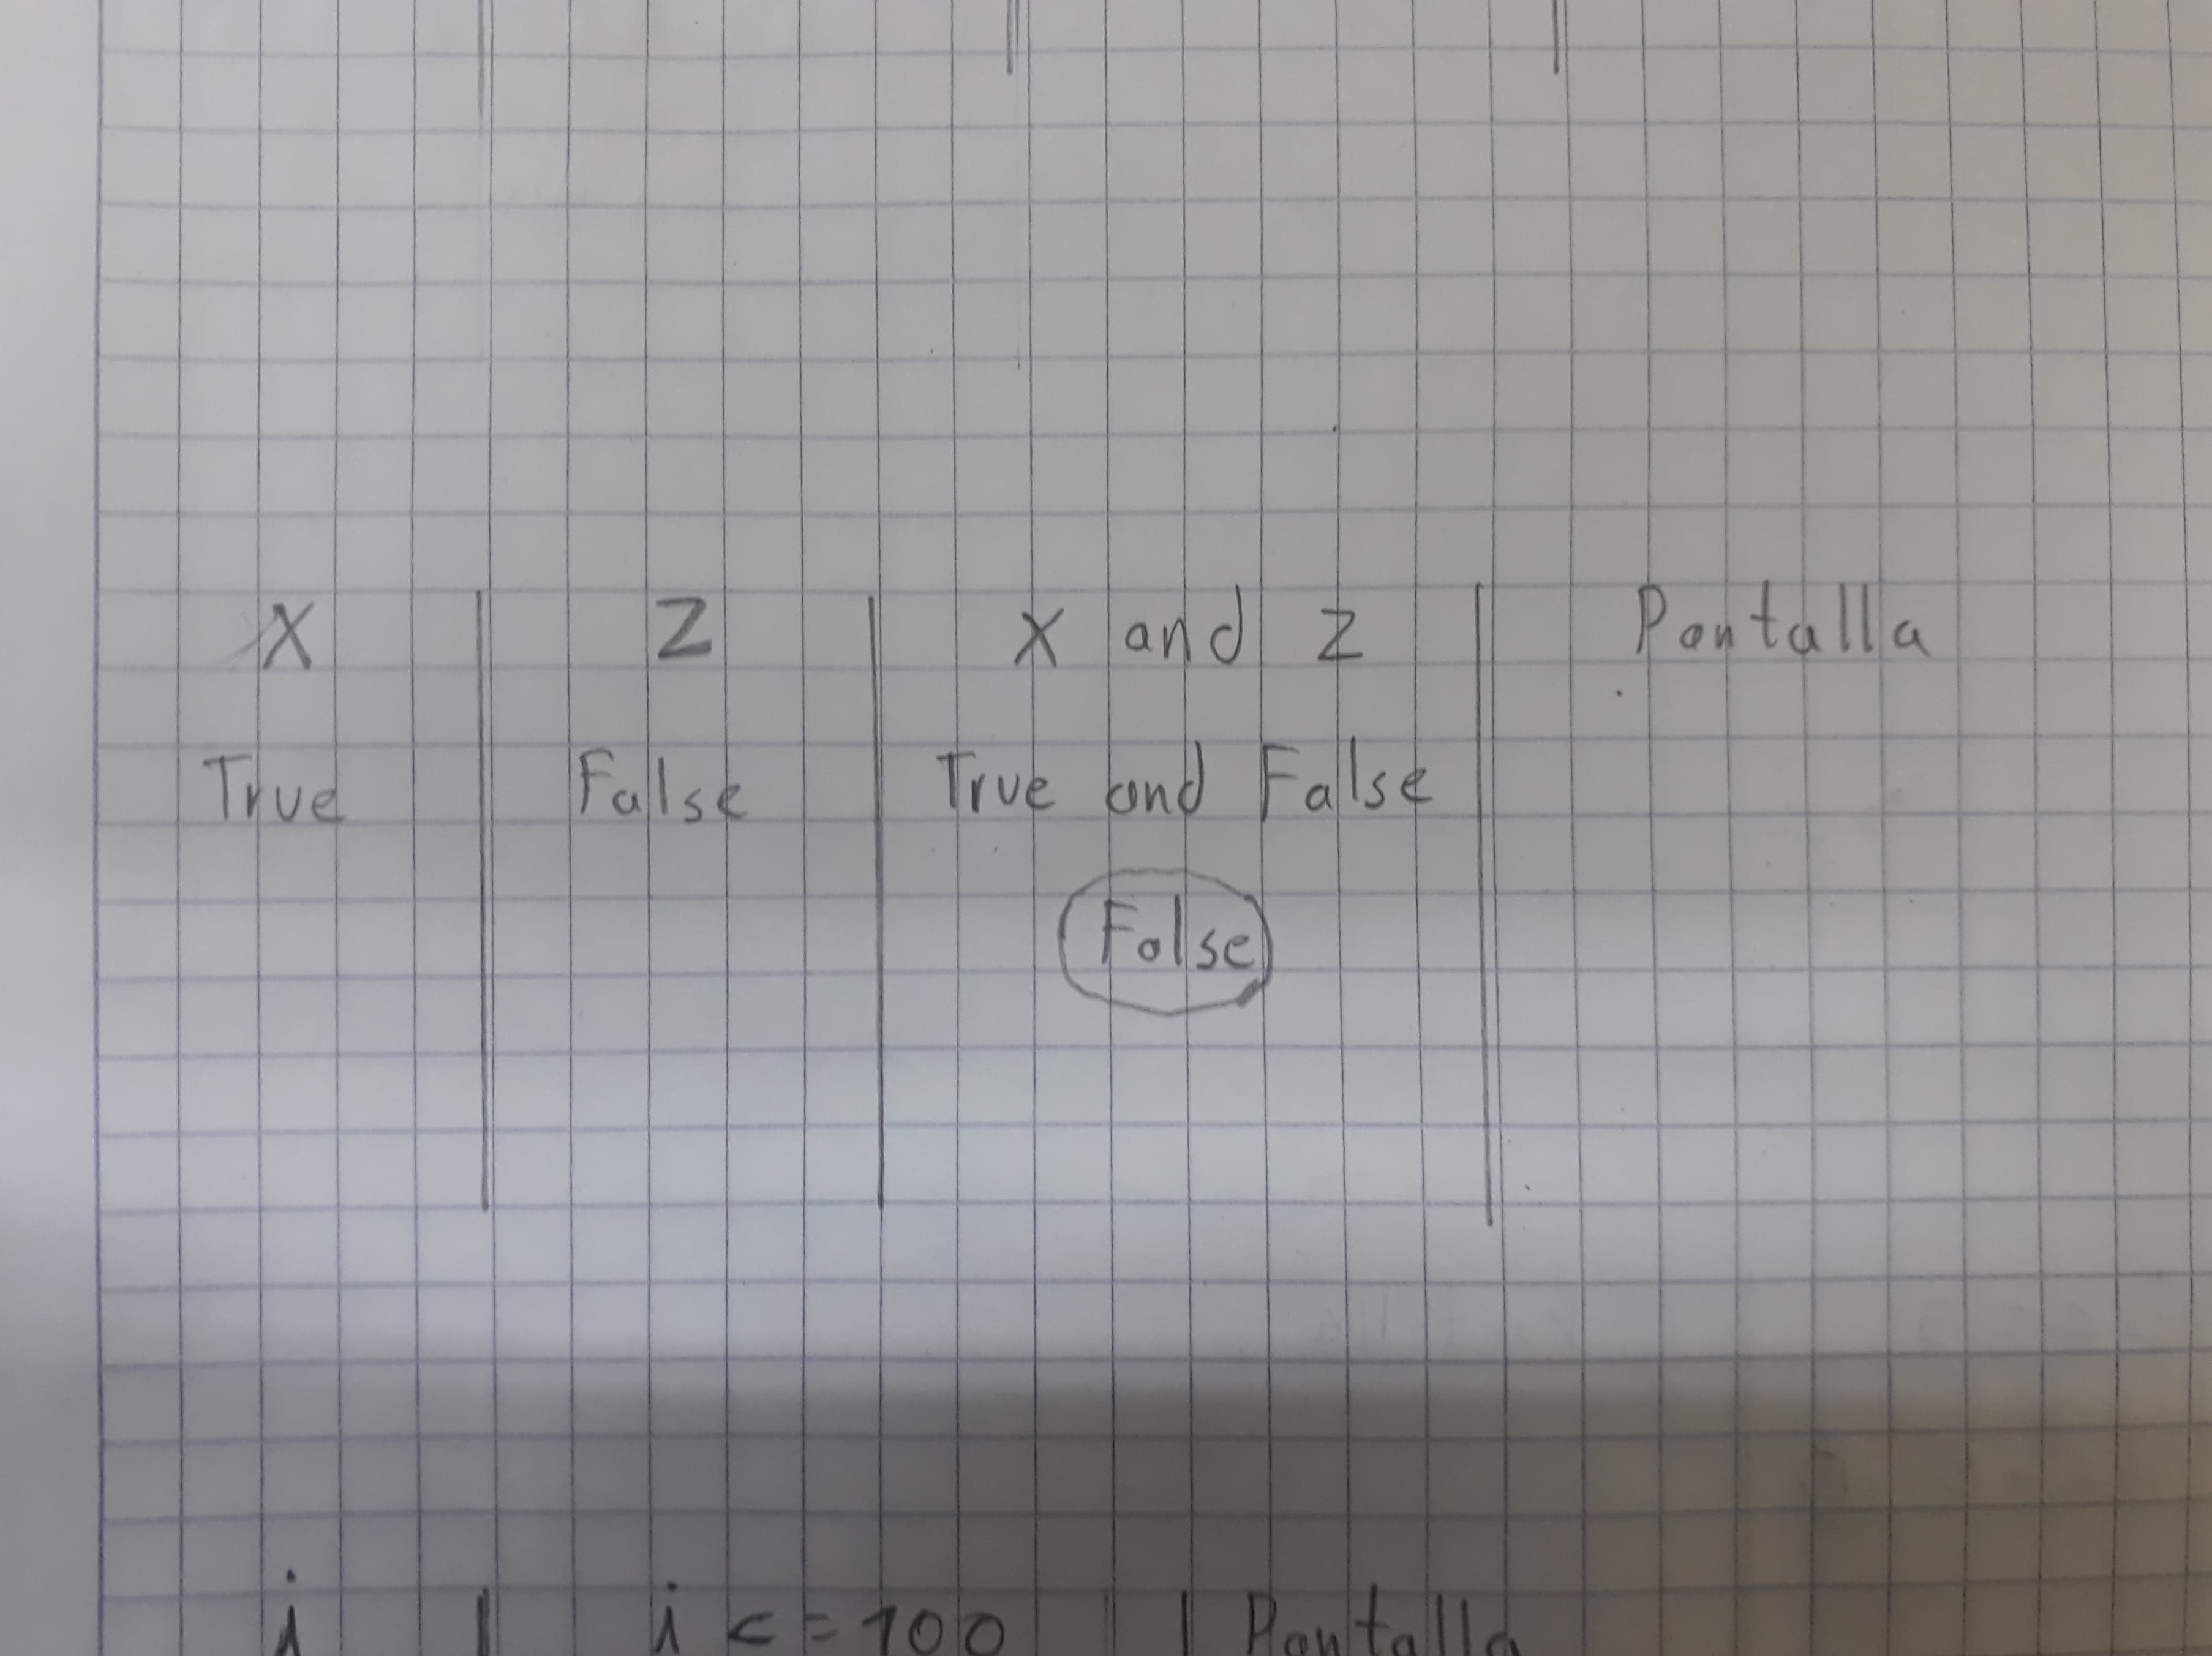 X Z X and Z Pantalla
True False True and False
False
i i <= 100 Pantalla